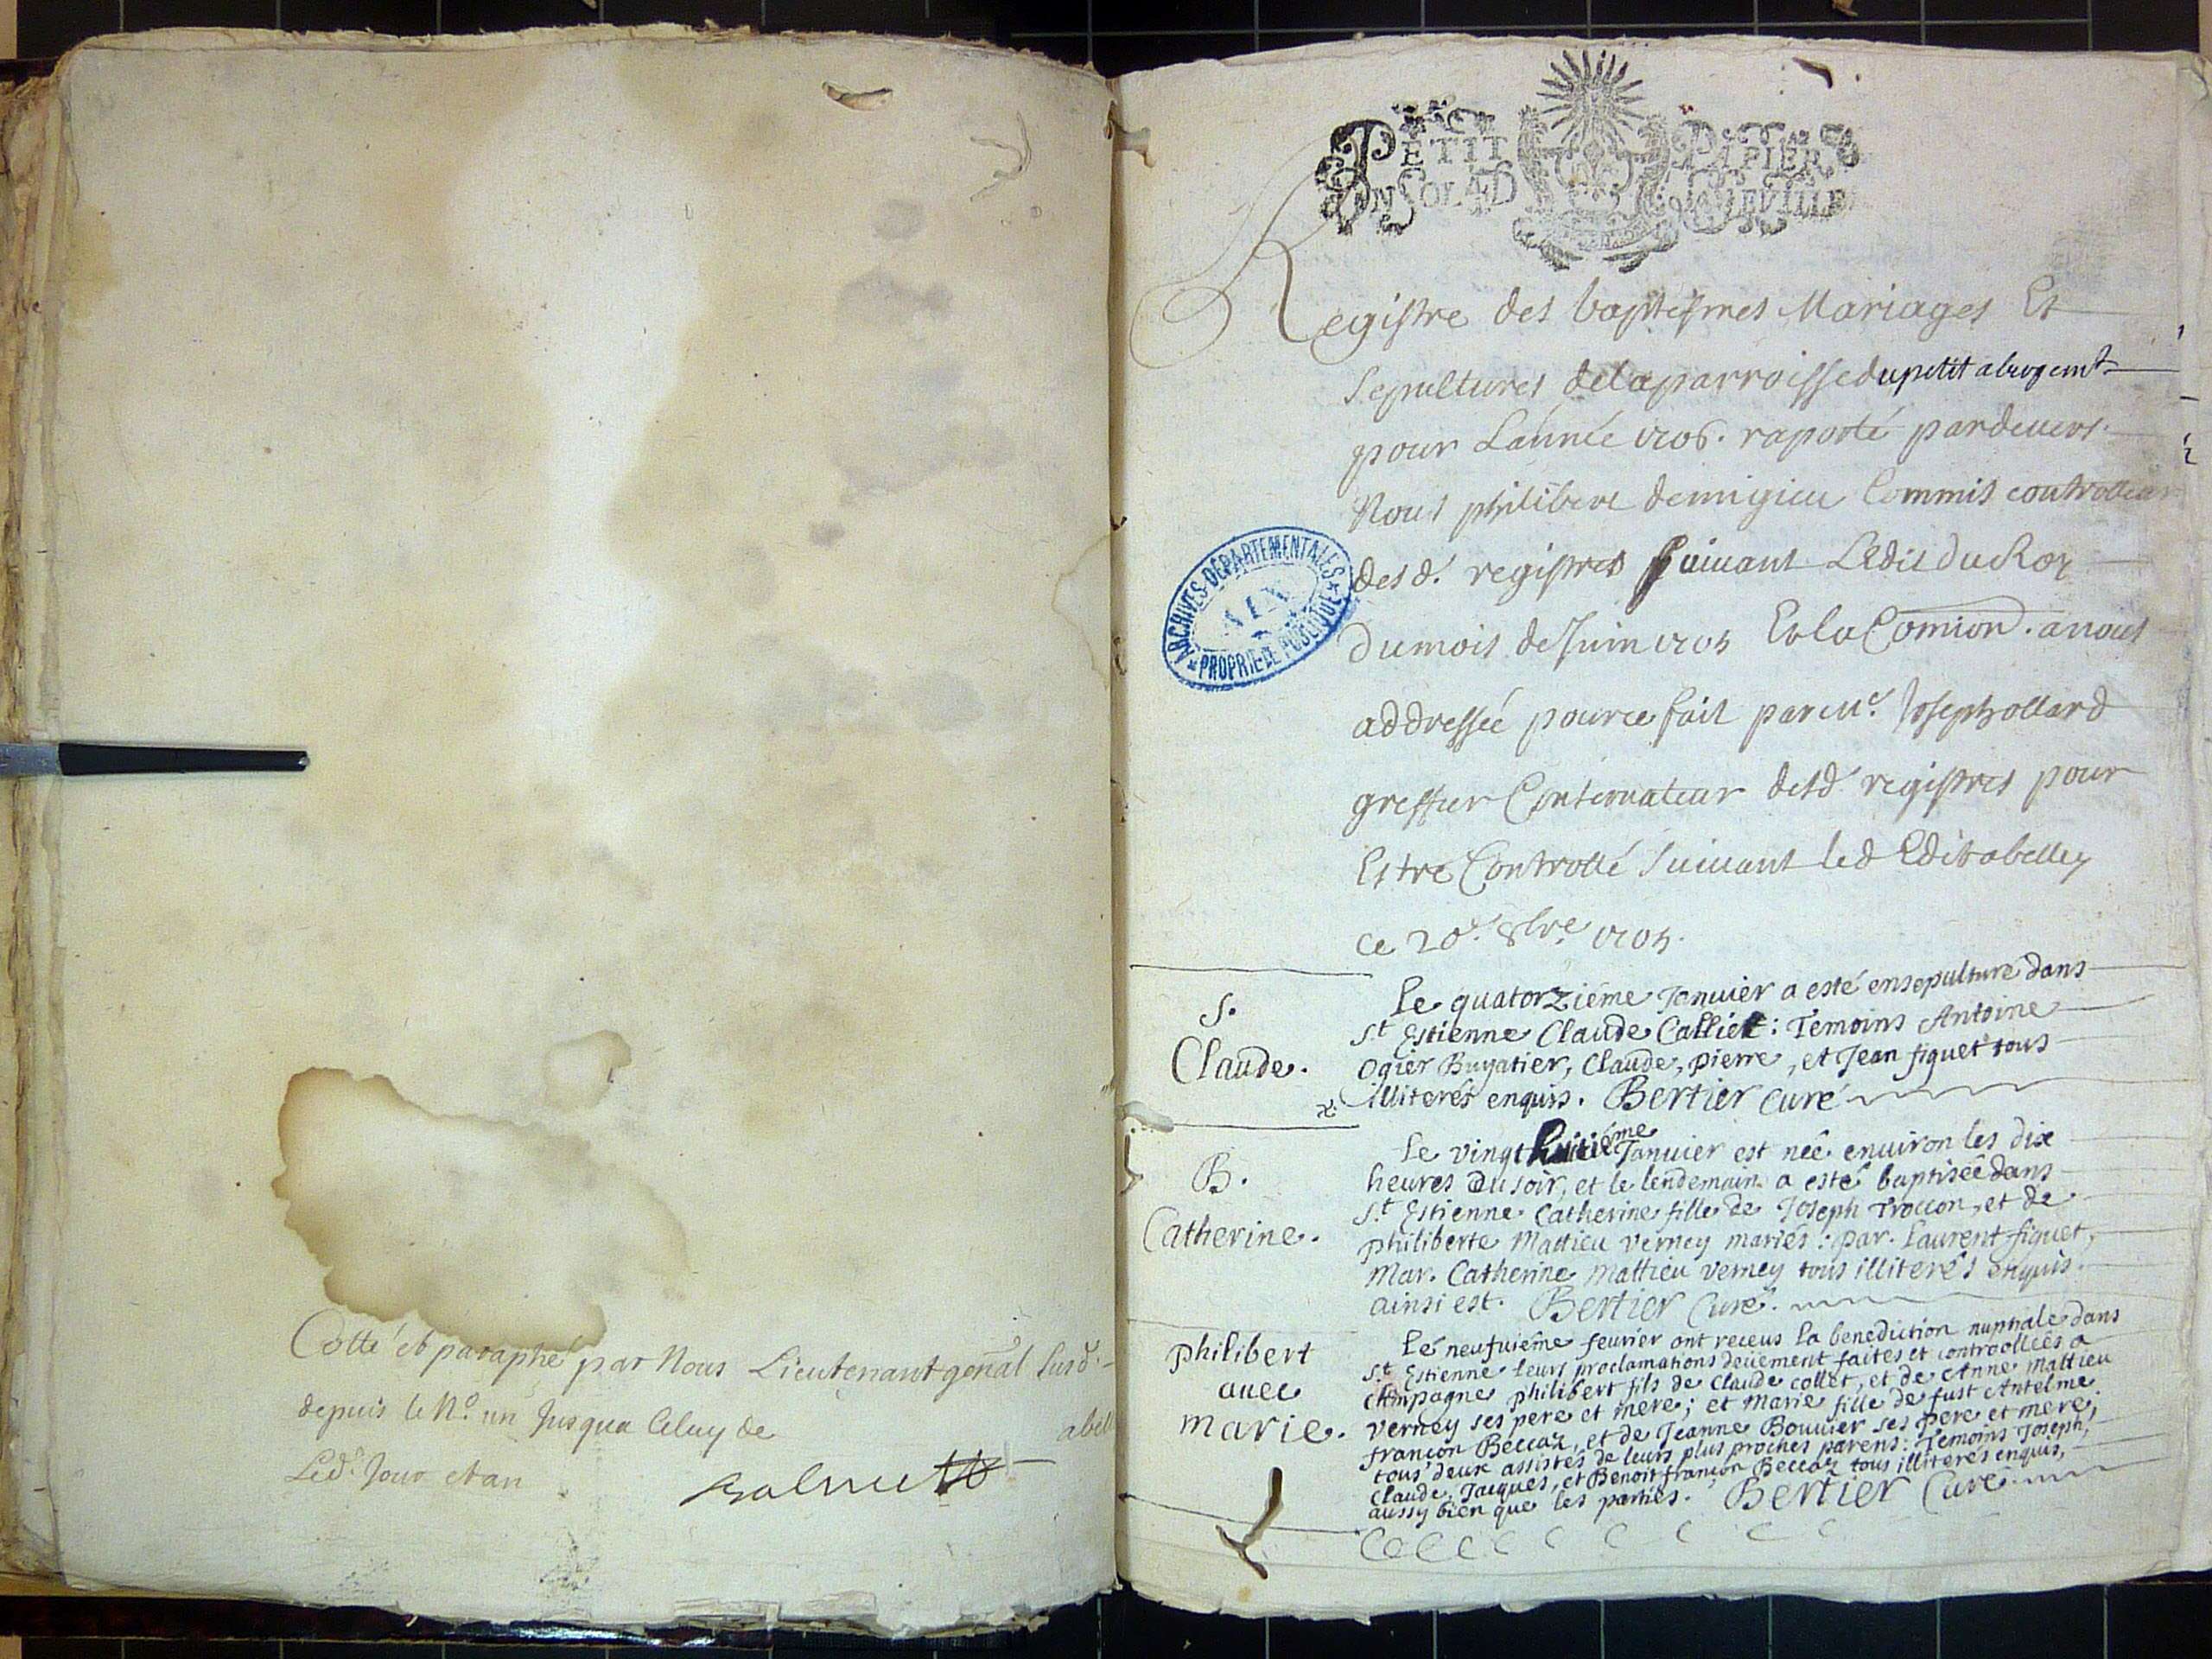 Cotté et paraphé par Nous Lieutenant genal susd.
depuis le N.o un Jusqua Celuy de
Led. Jour et an
PETIT PAPIER
UN SOL 4 D LA FEVILLE
Registre des baptesmes Mariages Et
Sepultures de la parroisse du petit abergemt
pour L'année 1706. raporté pardevers
Nous philibert demigieu Commis controlleur
desd. registres suivant L'edit du Roy
du mois de Juin 1705 Et la Comion. a nous
addressée pour ce fait par Me. Joseph ollard
greffier Conservateur desd. registres pour
Estre Controllé suivant led Edit a belley
Ce 20e. 8bre. 1705.
ARCHIVES DÉPARTEMENTALES
AIN
PROPRIÉTÉ PUBLIQUE
S.
Claude.
Le quatorziéme Januier a esté ensepulturé dans
St. Estienne Claude Calliet: Temoins Antoine
Ogier Bugatier, Claude, pierre, et Jean figuet tous
illiterés enquis. Bertier Curé
B.
Catherine.
Le vingt huitiéme Januier est née enuiron les dix
heures du soir, et le lendemain a esté baptisée dans
St. Estienne Catherine fille de Joseph Troccon, et de
philiberte Mattieu verney mariés: par. Laurent figuet,
Mar. Catherine Mattieu verney tous illiterés enquis.
ainsi est. Bertier Curé.
philibert
auec
marie.
Le neufuiéme feurier ont receus la benediction nuptiale dans
St. Estienne leurs proclamations deüement faites et controollées a
Champagne philibert fils de Claude collet, et de Anne Mattieu
verney ses pere et mere; et Marie fille de fust Antelme
françon Beccaz, et de Jeanne Bouuier ses pere et mere;
tous deux assistés de leurs plus proches parens: Temoins Joseph,
Claude, Jacques, et Benoit françon Beccaz tous illiterés enquis,
aussy bien que les parties. Bertier Curé